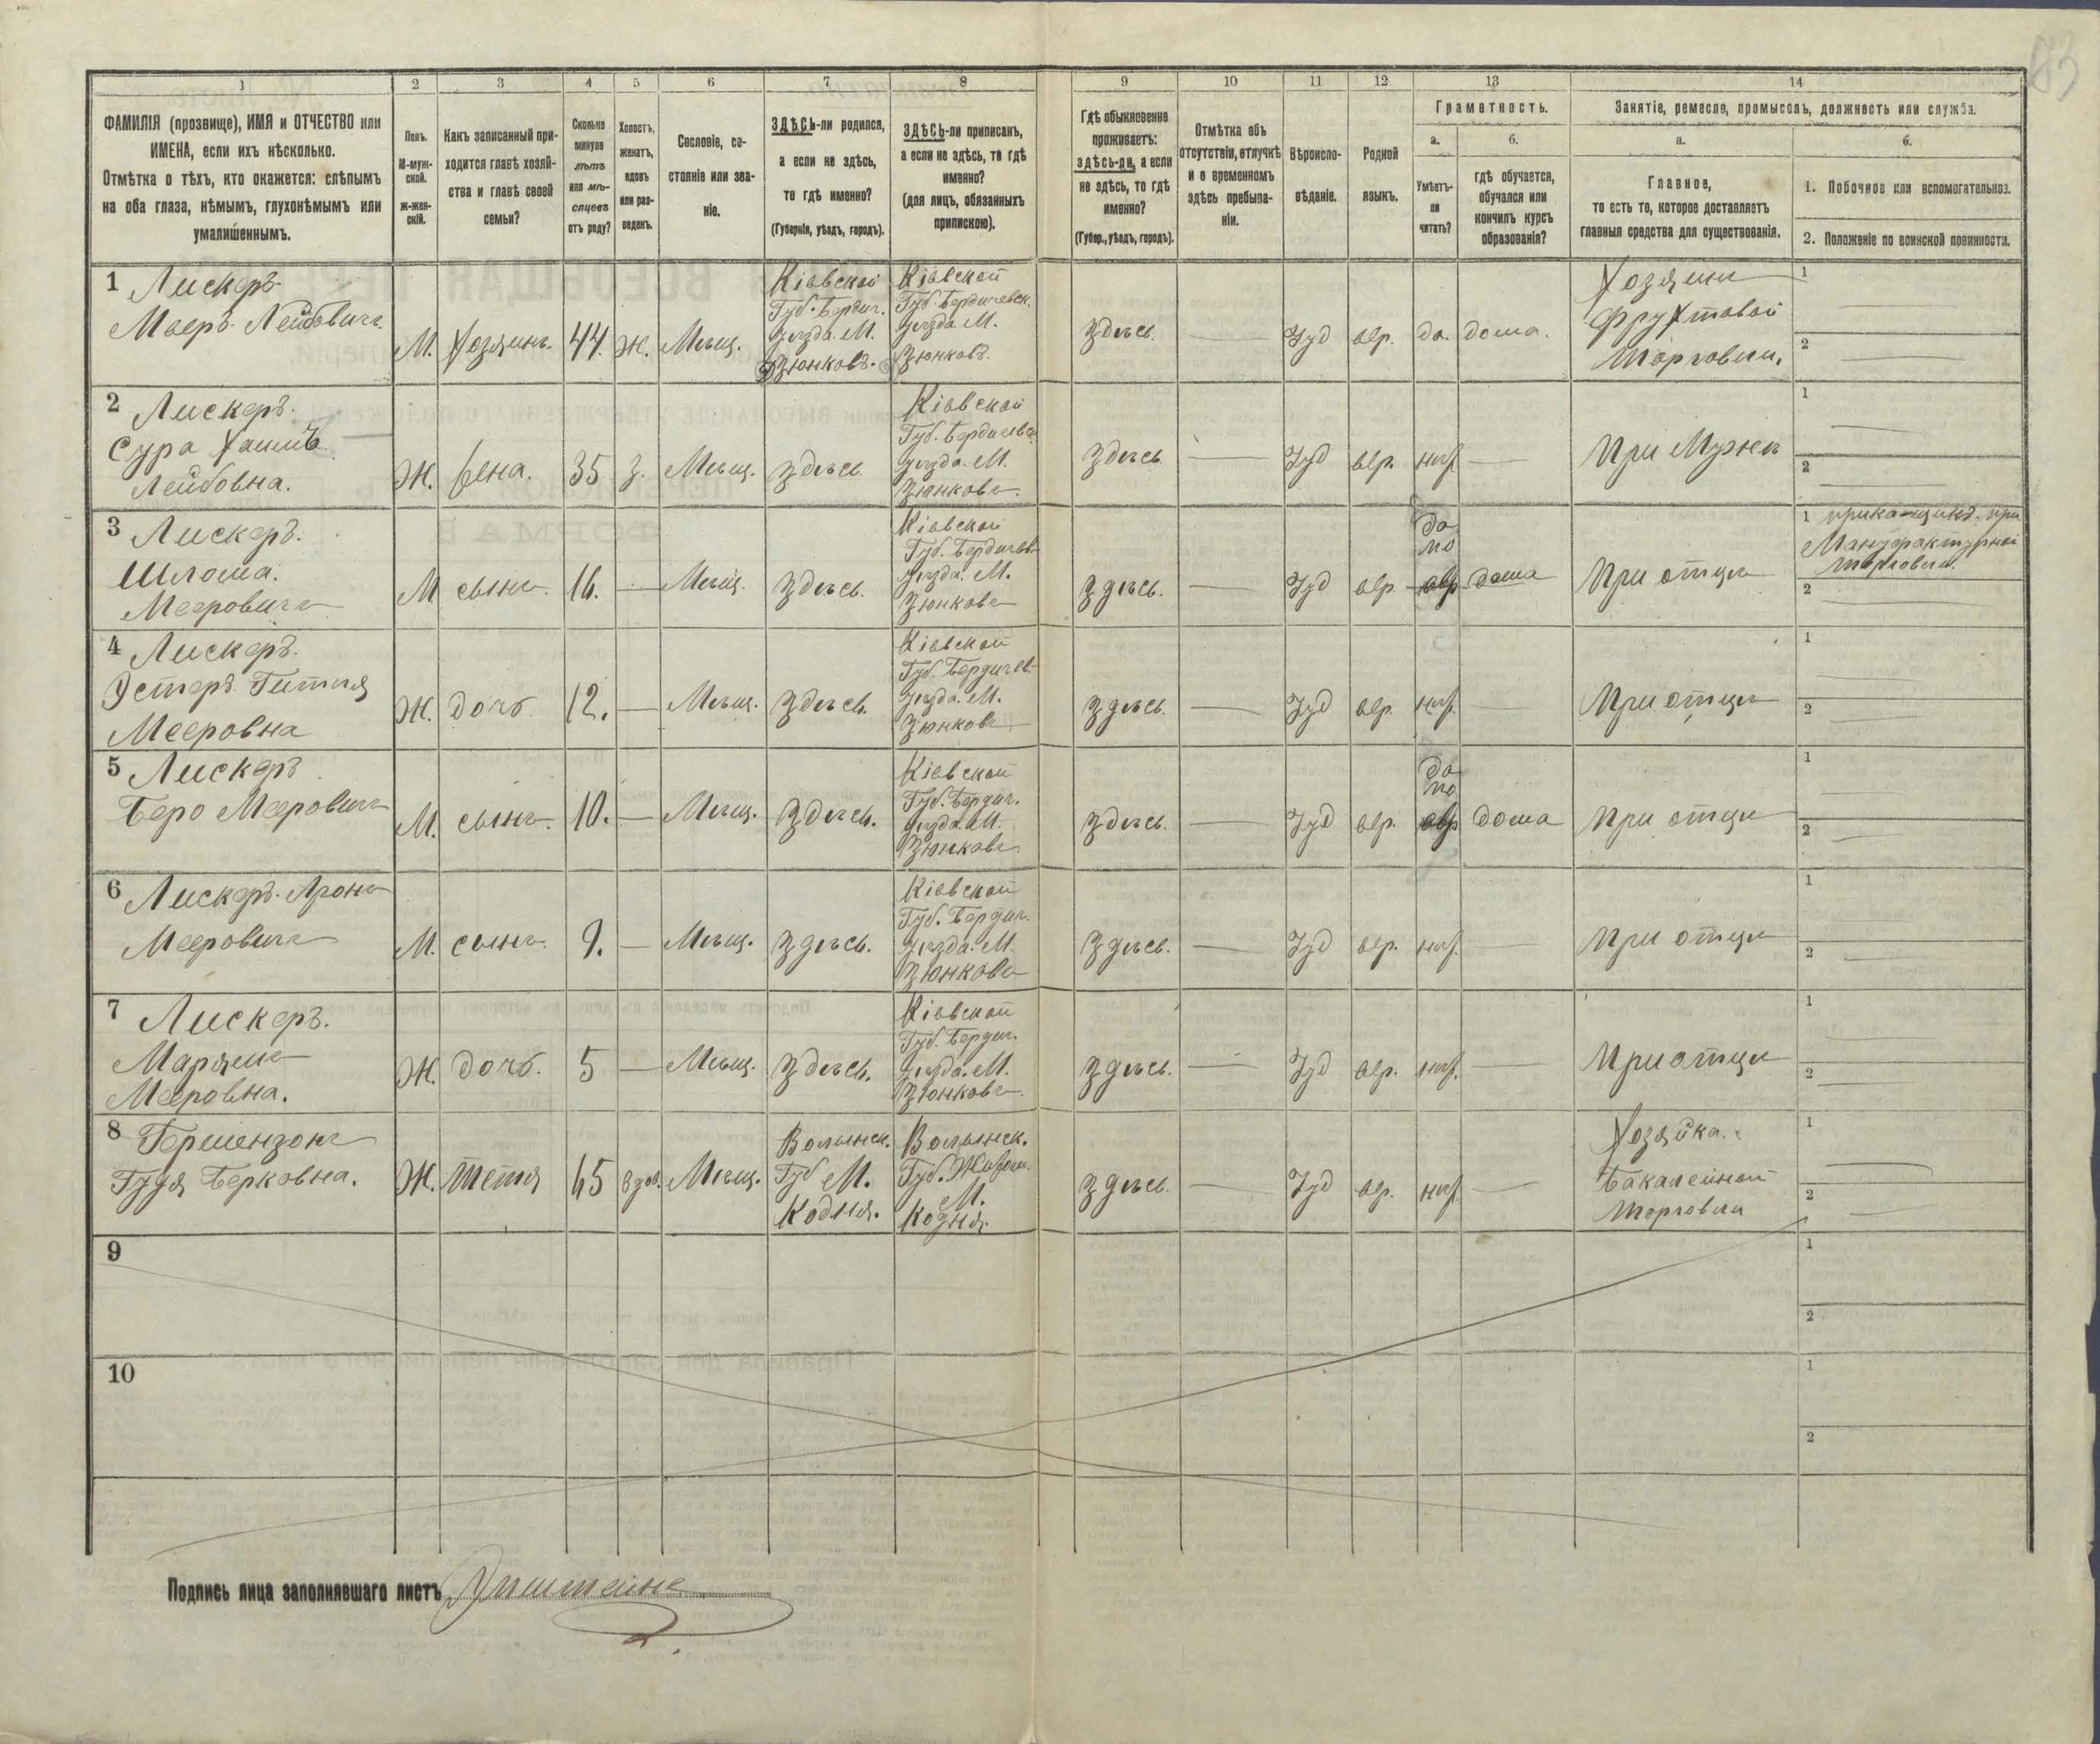 83
1 2 3 4 5 6 7 8 9 10 11 12 13 14
ФАМИЛІЯ (прозвище), ИМЯ и ОТЧЕСТВО или
ИМЕНА, если ихъ нѣсколько.
Отмѣтка о тѣхъ, кто окажется: слѣпымъ
на оба глаза, нѣмымъ, глухонѣмымъ или
умалишеннымъ.
Полъ.
М-муж-
ской.
ж-жен-
скій.
Какъ записанный при-
ходится главѣ хозяй-
ства и главѣ своей
семьи?
Сколько
минуло
лѣтъ
или мѣ-
сяцевъ
отъ роду?
Холостъ,
женатъ,
вдовъ
или раз-
веденъ.
Сословіе, со-
стояніе или зва-
ніе.
ЗДѢСЬ-ли родился,
а если не здѣсь,
то гдѣ именно?
(Губернія, уѣздъ, городъ).
ЗДѢСЬ-ли приписанъ,
а если не здѣсь, то гдѣ
именно?
(для лицъ, обязанныхъ
припискою).
Гдѣ обыкновенно
проживаетъ:
здѣсь-ли, а если
не здѣсь, то гдѣ
именно?
(Губер., уѣздъ, городъ).
Отмѣтка объ
отсутствіи, отлучкѣ
и о временномъ
здѣсь пребыва-
ніи.
Вѣроиспо-
вѣданіе.
Родной
языкъ.
Грамотность.
а.
Умѣетъ-
ли
читать?
б.
гдѣ обучается,
обучался или
кончилъ курсъ
образованія?
Занятіе, ремесло, промыселъ, должность или служба.
а.
Главное,
то есть то, которое доставляетъ
главныя средства для существованія.
б.
1. Побочное или вспомогательное.
2. Положеніе по воинской повинности.
1 Лискеръ
Мееръ Лейбовичъ
М. Хозяинъ. 44. Ж. Мѣщ.
Кіевской
Губ. Бердич.
уѣзда М.
Зюнковъ.
Кіевской
Губ. Бердичевск.
уѣзда М.
Зюнковъ.
здѣсь. — Іуд евр. да. дома.
Хозяинъ
Фруктовой
Торговли.
1
2
2 Лискеръ.
Сура
Лейбовна.
Ж. жена. 35 З. Мѣщ. здѣсь.
Кіевской
Губ. Бердичевс.
уѣзда. М.
Зюнковъ.
здѣсь — Іуд евр. нѣт — При Мужѣ
1
2
3 Лискеръ.
Шлома.
Мееровичъ
М сынъ. 16. — Мѣщ. здѣсь.
Кіевской
Губ. Бердичев.
уѣзда. М.
Зюнковъ
здѣсь. — Іуд евр.
да
по
евр дома При отцѣ
1 прикащикъ при
Мануфактурной
торговли.
2
4 Лискеръ.
Эстеръ Гитля
Мееровна
Ж. дочь. 12. — Мѣщ. здѣсь.
Кіевской
Губ. Бердичев.
уѣзда. М.
Зюнковъ
здѣсь. — Іуд евр. нѣт. — При отцѣ
1
2
5 Лискеръ
Беро Мееровичъ
М. сынъ. 10. — Мѣщ. здѣсь.
Кіевской
Губ. Бердич.
уѣзда. М.
Зюнковъ.
здѣсь. — Іуд евр.
да
по
евр дома При отцѣ
1
2
6 Лискеръ. Аронъ
Мееровичъ
М. сынъ. 9. — Мѣщ. здѣсь.
Кіевской
Губ. Бердич.
уѣзда. М.
Зюнковъ
здѣсь. — Іуд евр. нѣт. — При отцѣ
1
2
7 Лискеръ.
Маріемъ
Мееровна.
Ж. дочь. 5 — Мѣщ. здѣсь.
Кіевской
Губ. Бердич.
уѣзда. М.
Зюнковъ.
здѣсь. — Іуд евр. нѣт. — При отцѣ
1
2
8 Гершензонъ
Гудя Берковна.
Ж. тетя 65 вдов. Мѣщ.
Волынск.
Губ М.
Кодня.
Волынск.
Губ. Житом.
М.
Кодня.
здѣсь. — Іуд евр. нѣт. —
Хозяйка.
Бакалейной
торговли
1
2
9
1
2
10
1
2
Подпись лица заполнявшаго листъ